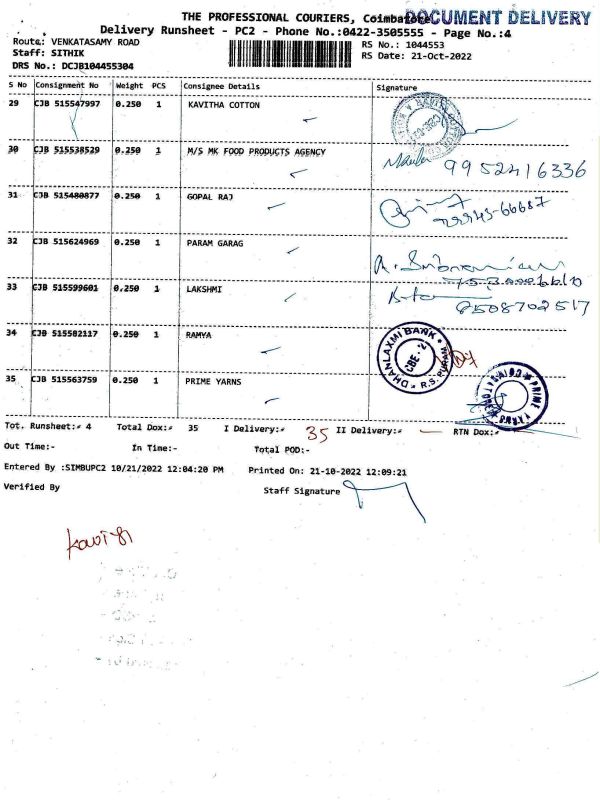 THE PROFESSIONAL COURIERS, Coimbatore
DOCUMENT DELIVERY
Delivery Runsheet - PC2 - Phone No.:0422-3505555 - Page No.:4
Route: VENKATASAMY ROAD
RS No.: 1044553
Staff: SITHIK
RS Date: 21-Oct-2022
DRS No.: DCJB104455304
S No Consignment No Weight PCS Consignee Details Signature
29 CJB 515547997 0.250 1 KAVITHA COTTON
30 CJB 515538529 0.250 1 M/S MK FOOD PRODUCTS AGENCY
9952416336
31 CJB 515480877 0.250 1 GOPAL RAJ
32 CJB 515624969 0.250 1 PARAM GARAG
33 CJB 515599601 0.250 1 LAKSHMI
8508702517
34 CJB 515582117 0.250 1 RAMYA
DHANLAXMI BANK
CBE. 2
R.S. PURAM
35 CJB 515563759 0.250 1 PRIME YARNS
PRIME YARNS
Tot. Runsheet:* 4 Total Dox:* 35 I Delivery:* 35 II Delivery:* — RTN Dox:*
Out Time:- In Time:- Total POD:-
Entered By :SIMBUPC2 10/21/2022 12:04:20 PM Printed On: 21-10-2022 12:09:21
Verified By Staff Signature